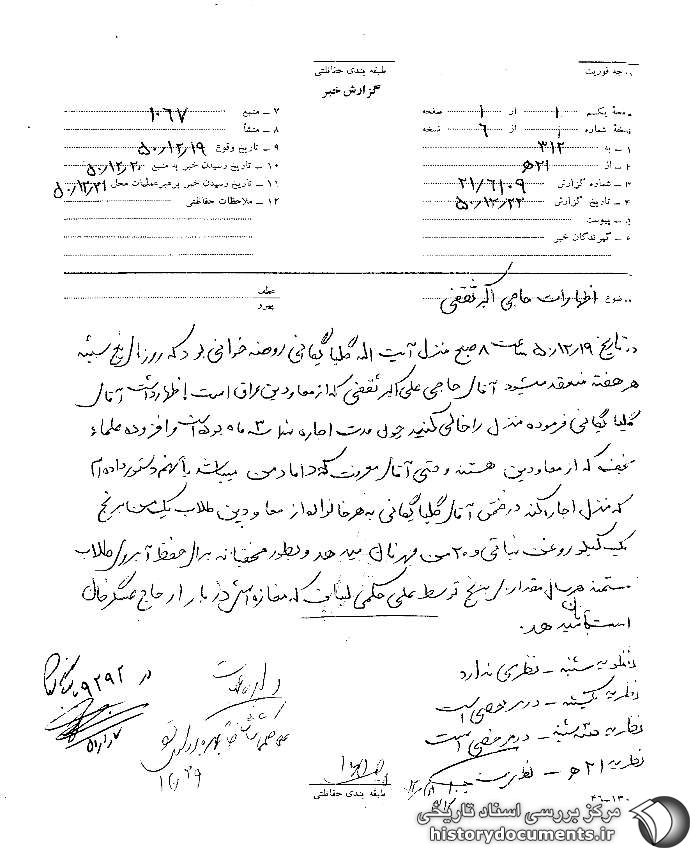 درجه فوریت
طبقه بندی حفاظتی
گزارش خبر
صفحهٔ یکم ۱ از ۱ صفحه
نسخهٔ شماره ۱ از ۶ نسخه
۱ – به ۳۱۲
۲ – از ۲۱ﻫ
۳ – شماره گزارش ۲۱/۶۱۰۹
۴ – تاریخ گزارش ۵۰/۱۲/۲۲
۵ – پیوست
۶ – گیرندگان خبر
۷ – منبع ۱۰۶۷
۸ – منشأ
۹ – تاریخ وقوع ۵۰/۱۲/۱۹
۱۰ – تاریخ رسیدن خبر به منبع ۵۰/۱۲/۲۰
۱۱ – تاریخ رسیدن خبر برهبر عملیات محل ۵۰/۱۲/۲۱
۱۲ – ملاحظات حفاظتی
موضوع اظهارات حاجی اکبر ثقفی
عطف
پیرو
در تاریخ ۵۰/۱۲/۱۹ ساعت ۸ صبح منزل آیت اله گلپایگانی روضه خوانی بود که روزهای پنج شنبه
هر هفته منعقد میشود آقای حاجی علی اکبر ثقفی که از معاودین عراق است اظهار داشت آقای
گلپایگانی فرموده منزل را خالی کنید چون مدت اجاره شما ۳ ماه بوده است و افزوده علماء
نجف که از معاودین هستند و حتی آقای که داماد من میباشد بآنهم دستور داده‌ام
که منزل اجاره کند در ضمن آقای گلپایگانی به هر خانواده از معاودین طلاب یک من برنج
یک کیلو روغن نباتی و ۲۰ من میدهد و بطور مخفیانه برای حفظ آبروی طلاب
مستمند هر سال مقداری برنج توسط علی حکمی که مغازه‌اش در بازار حاج عسگرخان
است میدهد.
نظریه شنبه – نظری ندارد
نظریه یکشنبه – در مرخصی است
نظریه سه‌شنبه – در مرخصی است
نظریه ۲۱ﻫ – نظری نیست
در ۹۲۹۲
۱۲/۲۹
طبقه بندی حفاظتی
مرکز بررسی اسناد تاریخی
historydocuments.ir